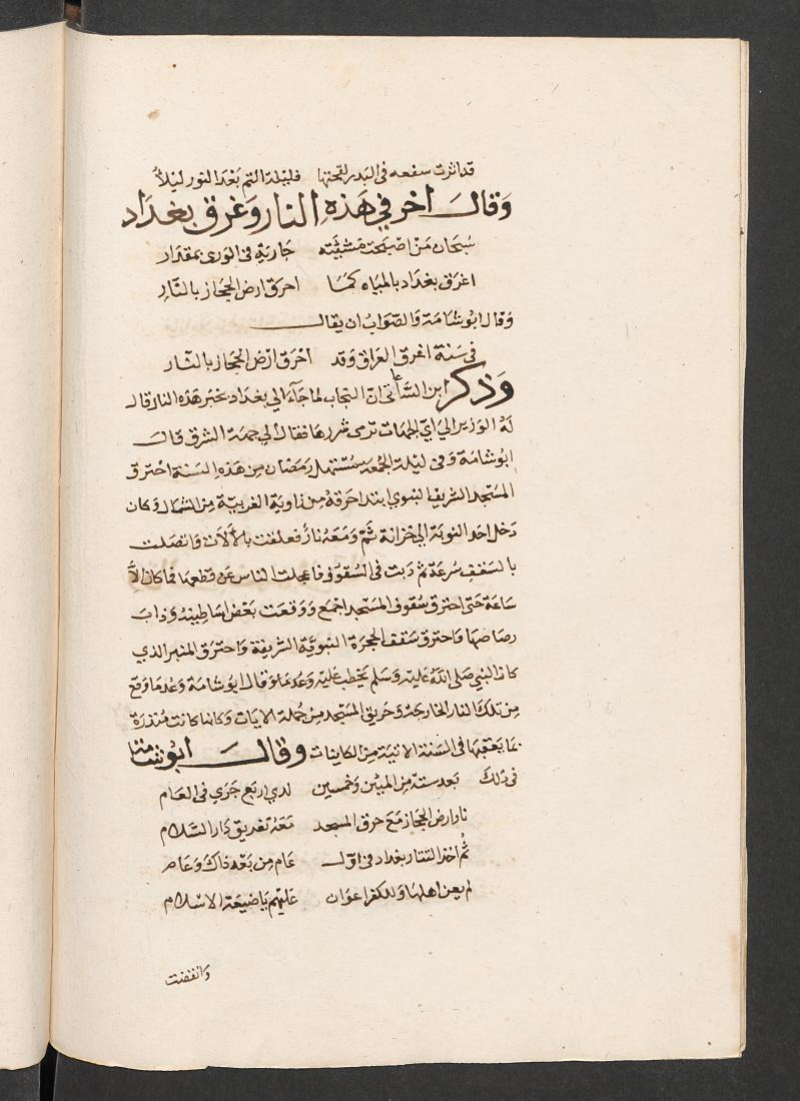 قد اثرت سفعه فى البدر لفحتها فليلة التم بعد النور ليلاً
وقال اخر في هذه النار وغرق بغداد
سبحان من اصبحت مشيئته جارية فى الورى بمقدار
اغرق بغداد بالمياه كما احرق ارض الحجاز بالنار
وقال ابو شامة والصواب ان يقال
فى سنة اغرق العراق وقد احرق ارض الحجاز بالنار
وذكر ابن الساعى ان النجاب لما جآء الي بغداد بخبر هذه النار قال
له الوزير الي اي الجهات ترمى شررها فقال الي جهة الشرق قال
ابو شامة وفى ليلة الجمعه مستهل رمضان من هذه السنة احترق
المسجد الشريف النبوي ابتدا حرقه من زاوية الغربية من الشمال وكان
دخل احد القومة الي خزانة ثم ومعه نار فعلقت بالالات واتصلت
بالسقف سرعة ثم دبت فى السقوف فاعجلت الناس عن قطعها فما كان الا
ساعة حتى احترق سقوف المسجد اجمع ووقعت بعض اساطينه وذاب
رصاصها واحترق سقف الحجرة النبوية الشريفة واحترق المنبر الذي
كان النبي صلى الله عليه وسلم يخطب عليه وقال ابو شامة وعد ما وقع
من تلك النار الخارجه وحريق المسجد من جملة الايات وكانها كانت منذرة
بما يعقبها فى السنة الاتية من الكاينات وقال ابو شامة
فى ذلك بعد ستة من المئين وخمسين لدي اربع جري فى العام
نار ارض الحجاز مع حرق المسجد معه تغريق دار السلام
ثم اخذ التتار بغداد فى اول عام من بعد ذاك وعام
لم يعن اهلها وللكفر اعوان عليهم يا ضيعة الاسلام
وانقضت